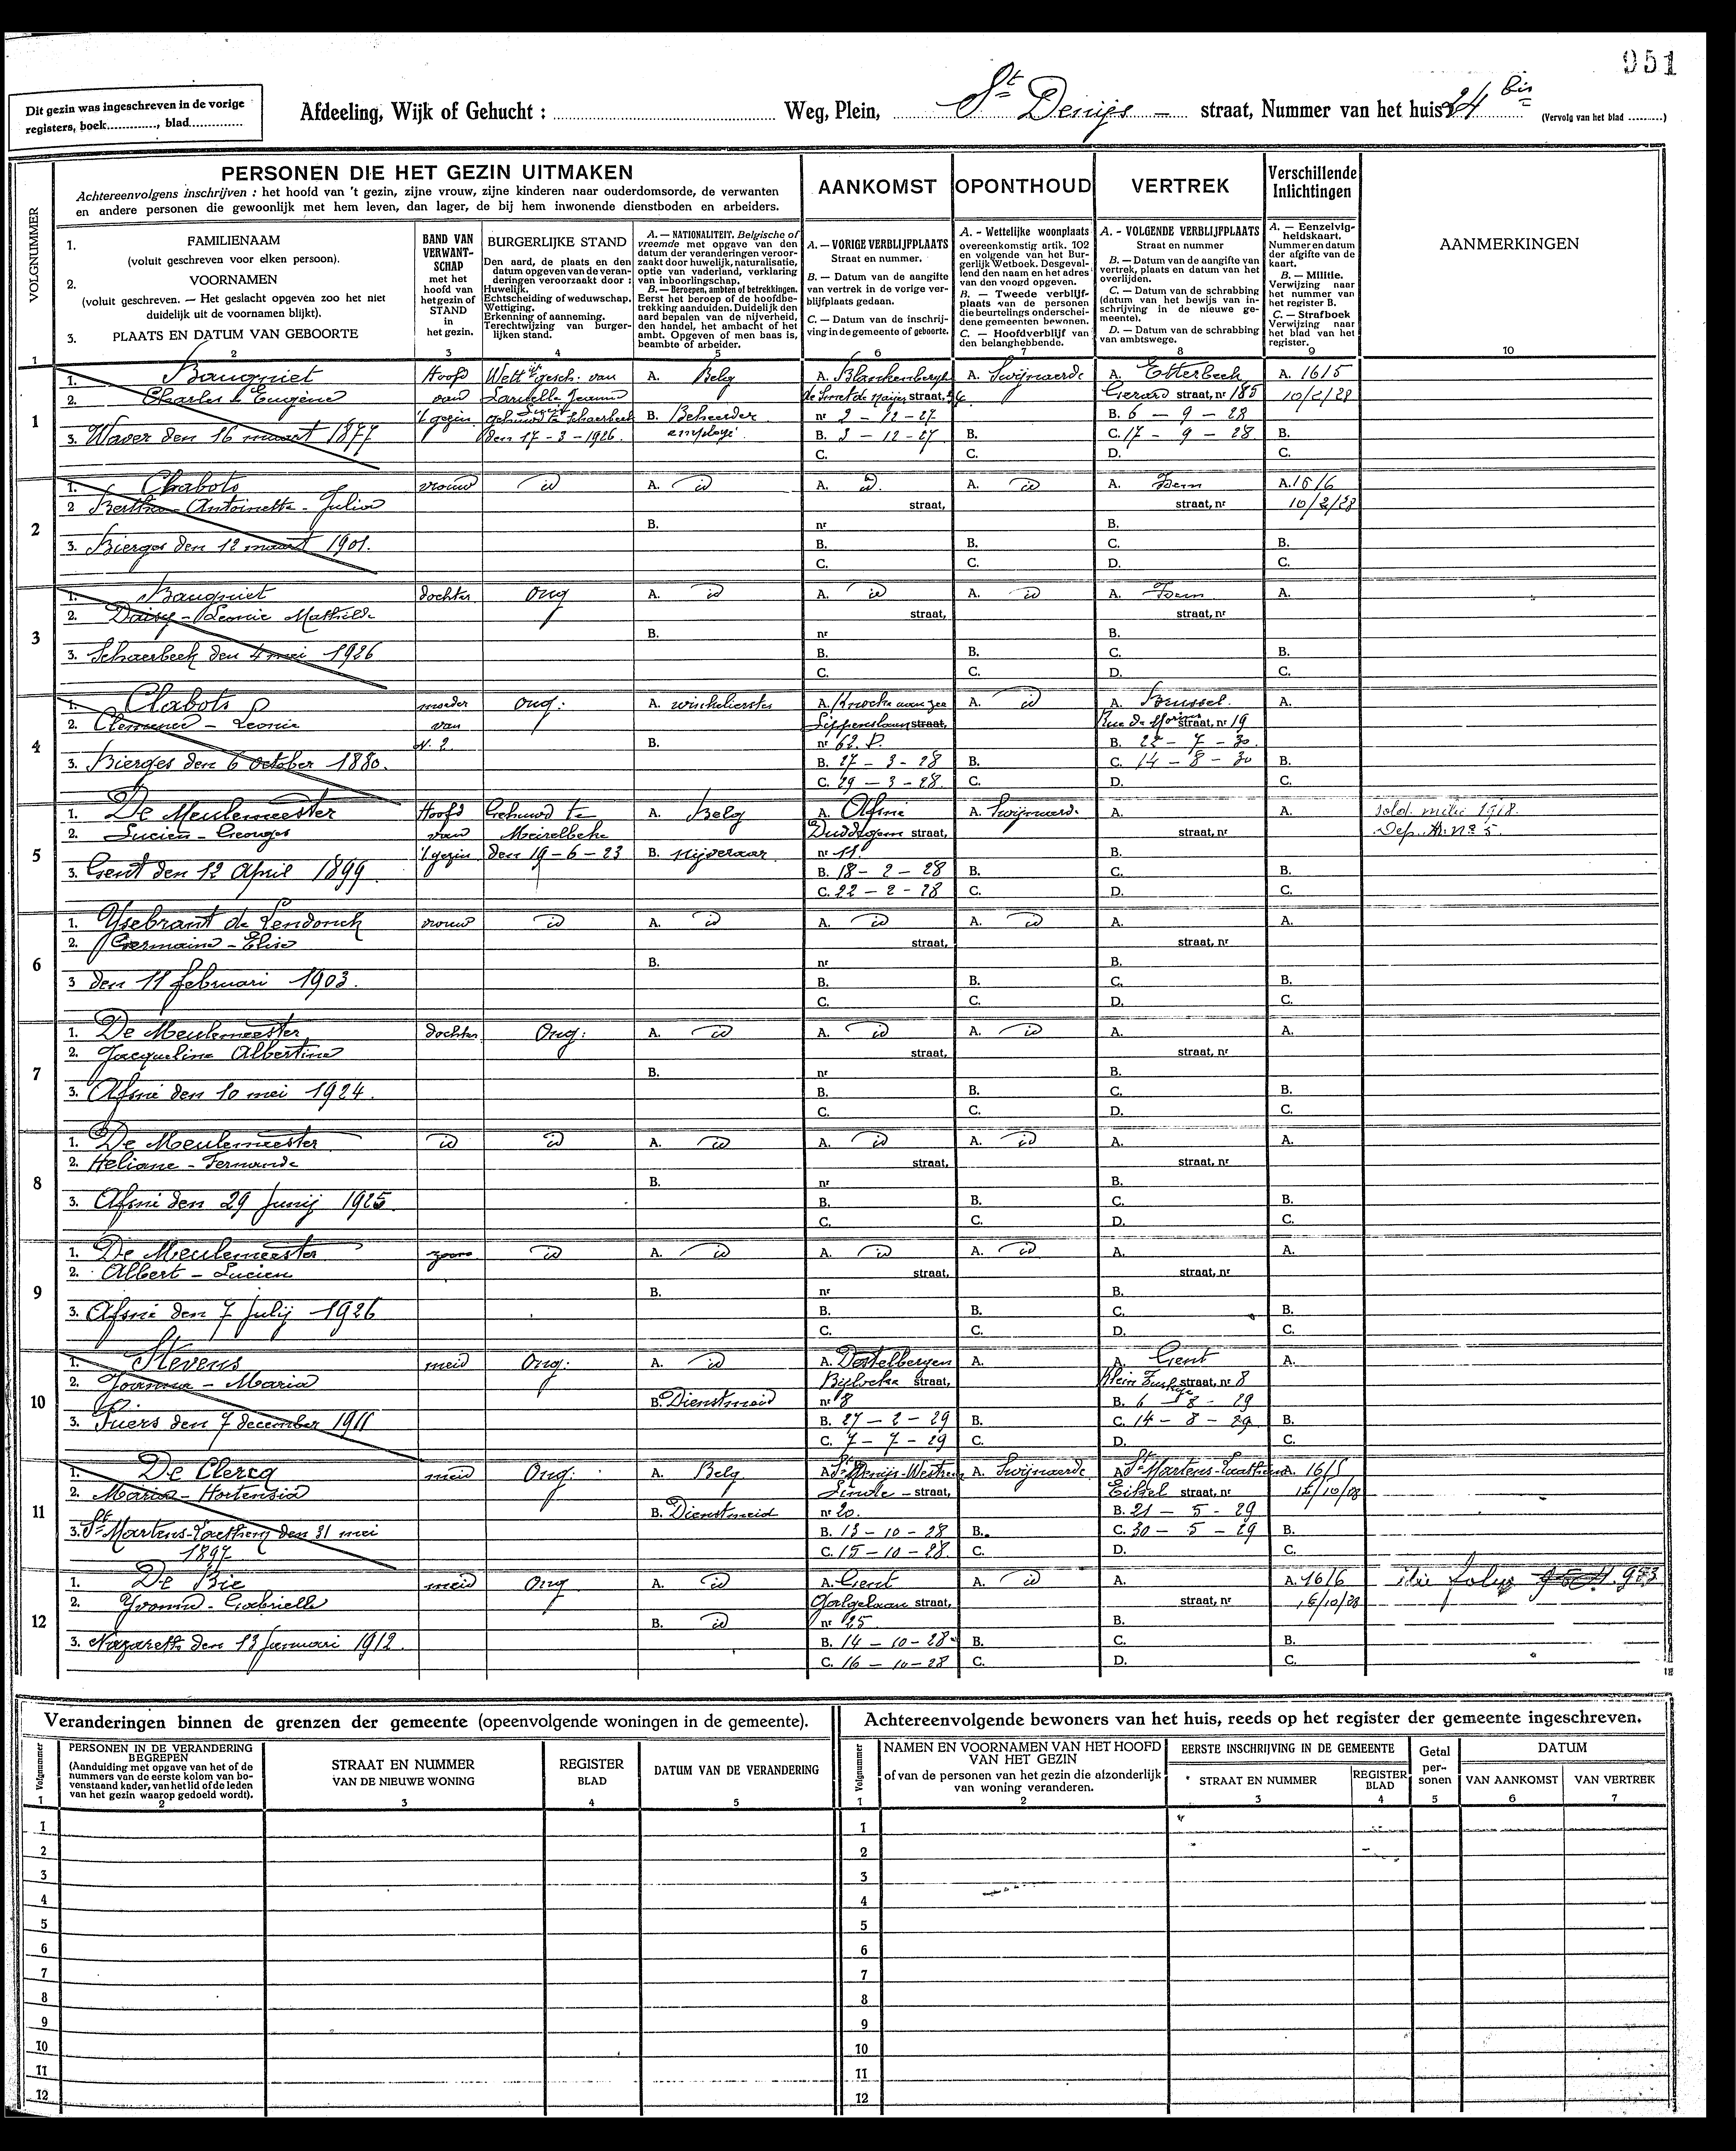 951
Dit gezin was ingeschreven in de vorige
registers, boek............., blad..............
Afdeeling, Wijk of Gehucht : Weg, Plein, St Denijs - straat, Nummer van het huis 24 bis (Vervolg van het blad .........)
PERSONEN DIE HET GEZIN UITMAKEN
Achtereenvolgens inschrijven : het hoofd van 't gezin, zijne vrouw, zijne kinderen naar ouderdomsorde, de verwanten
en andere personen die gewoonlijk met hem leven, dan lager, de bij hem inwonende dienstboden en arbeiders.
AANKOMST
OPONTHOUD
VERTREK
Verschillende
Inlichtingen
VOLGNUMMER
1.
FAMILIENAAM
(voluit geschreven voor elken persoon).
2.
VOORNAMEN
(voluit geschreven. — Het geslacht opgeven zoo het niet
duidelijk uit de voornamen blijkt).
3.
PLAATS EN DATUM VAN GEBOORTE
BAND VAN
VERWANT-
SCHAP
met het
hoofd van
het gezin of
STAND
in
het gezin.
BURGERLIJKE STAND
Den aard, de plaats en den
datum opgeven van de veran-
deringen veroorzaakt door :
Huwelijk.
Echtscheiding of weduwschap.
Wettiging.
Erkenning of aanneming.
Terechtwijzing van burger-
lijken stand.
A. — NATIONALITEIT. Belgische of
vreemde met opgave van den
datum der veranderingen veroor-
zaakt door huwelijk, naturalisatie,
optie van vaderland, verklaring
van inboorlingschap.
B. — Beroepen, ambten of betrekkingen.
Eerst het beroep of de hoofdbe-
trekking aanduiden. Duidelijk den
aard bepalen van de nijverheid,
den handel, het ambacht of het
ambt. Opgeven of men baas is,
beambte of arbeider.
A. — VORIGE VERBLIJFPLAATS
Straat en nummer.
B. — Datum van de aangifte
van vertrek in de vorige ver-
blijfplaats gedaan.
C. — Datum van de inschrij-
ving in de gemeente of geboorte.
A. - Wettelijke woonplaats
overeenkomstig artik. 102
en volgende van het Bur-
gerlijk Wetboek. Desgeval-
lend den naam en het adres
van den voogd opgeven.
B. — Tweede verblijf-
plaats van de personen
die beurtelings onderschei-
dene gemeenten bewonen.
C. — Hoofdverblijf van
den belanghebbende.
A. - VOLGENDE VERBLIJFPLAATS
Straat en nummer
B. — Datum van de aangifte van
vertrek, plaats en datum van het
overlijden.
C. — Datum van de schrabbing
(datum van het bewijs van in-
schrijving in de nieuwe ge-
meente).
D. — Datum van de schrabbing
van ambtswege.
A. — Eenzelvig-
heidskaart.
Nummer en datum
der afgifte van de
kaart.
B. — Militie.
Verwijzing naar
het nummer van
het register B.
C. — Strafboek
Verwijzing naar
het blad van het
register.
AANMERKINGEN
1 2 3 4 5 6 7 8 9 10
1
1. Bauquiet Hoofd Wett gesch. van A. Belg A. Blankenbergh A. Swijnaerde A. Etterbeek A. 1615
2. Charles Eugène van straat, Gerard straat, nr 185 10/2/28
't gezin gehuwd te Schaerbeek B. Beheerder nr 2 - 12 - 27 B. 6 - 9 - 28
3. Waver den 16 maart 1877 den 17 - 3 - 1926. employé B. 3 - 12 - 27 B. C. 17 - 9 - 28 B.
C. C. D. C.
2
1. Chabots vrouw id A. id A. id A. id A. Idem A. 1616
2 Bertha - Antoinette - Julia straat, straat, nr 10/2/28
B. nr B.
3. Bierges den 12 maart 1901. B. B. C. B.
C. C. D. C.
3
1. Bauquiet dochter ong A. id A. id A. id A. Idem A.
2. Daisy - Leonie Mathilde straat, straat, nr
B. nr B.
3. Schaerbeek den 4 mei 1926 B. B. C. B.
C. C. D. C.
4
1. Clabots moeder ong: A. winkelierster A. Knocke aan zee A. id A. Brussel. A.
2. Clemence - Leonie van Lippenslaan straat, straat, nr 19
N. 2 B. nr 62. P. B. 22 - 7 - 30.
3. Bierges den 6 october 1880. B. 27 - 3 - 28 B. C. 14 - 8 - 30 B.
C. 29 - 3 - 28. C. D. C.
5
1. De Meulemeester Hoofd Gehuwd te A. Belg A. Afsné A. Swijnaerde A. A. sold. milic 1918.
2. Lucien - Georges van Meirelbeke straat, straat, nr Dep. A. nr 5.
't gezin den 19 - 6 - 23 B. nijveraar nr 11. B.
3. Gent den 12 April 1899. B. 18 - 2 - 28 B. C. B.
C. 22 - 2 - 28 C. D. C.
6
1. Ysebrant de Lendonck vrouw id A. id A. id A. id A. A.
2. Germaine - Elise straat, straat, nr
B. nr B.
3 den 11 februari 1903. B. B. C. B.
C. C. D. C.
7
1. De Meulemeester dochter Ong: A. id A. id A. id A. A.
2. Jacqueline Albertine straat, straat, nr
B. nr B.
3. Afsné den 10 mei 1924. B. B. C. B.
C. C. D. C.
8
1. De Meulemeester id id A. id A. id A. id A. A.
2. Heliane - Fernande straat, straat, nr
B. nr B.
3. Afsné den 29 Junij 1925. B. B. C. B.
C. C. D. C.
9
1. De Meulemeester zoon id A. id A. id A. id A. A.
2. Albert - Lucien straat, straat, nr
B. nr B.
3. Afsné den 7 Julij 1926 B. B. C. B.
C. C. D. C.
10
1. Stevens meid Ong: A. id A. Destelbergen A. A. Gent A.
2. Joanna - Maria Bijlocke straat, Klein straat, nr 8
B. Dienstmeid nr 8 B. 6 - 8 - 29
3. Puers den 7 december 1911 B. 27 - 2 - 29 B. C. 14 - 8 - 29 B.
C. 7 - 7 - 29 C. D. C.
11
1. De Clercq meid Ong: A. Belg A. St Denijs-Westrem A. Swijnaerde A. St Martens-Laathem A. 1615
2. Maria - Hortensia Linde - straat, straat, nr 15/10/28
B. Dienstmeid nr 20. B. 21 - 5 - 29
3. St Martens-Laethem den 31 mei B. 13 - 10 - 28 B. C. 30 - 5 - 29 B.
1897 C. 15 - 10 - 28. C. D. C.
12
1. De Bie meid Ong A. id A. Gent A. id A. A. 1616 zie folio 973
2. Yvonne - Gabrielle Galgelaan straat, straat, nr 16/10/28
B. id nr 25 B.
3. Nazareth den 13 Januari 1912. B. 14 - 10 - 28 B. C. B.
C. 16 - 10 - 28 C. D. C.
Veranderingen binnen de grenzen der gemeente (opeenvolgende woningen in de gemeente).
Volgnummer
PERSONEN IN DE VERANDERING
BEGREPEN
(Aanduiding met opgave van het of de
nummers van de eerste kolom van bo-
venstaand kader, van het lid of de leden
van het gezin waarop gedoeld wordt).
STRAAT EN NUMMER
VAN DE NIEUWE WONING
REGISTER
BLAD
DATUM VAN DE VERANDERING
1 2 3 4 5
1
2
3
4
5
6
7
8
9
10
11
12
Achtereenvolgende bewoners van het huis, reeds op het register der gemeente ingeschreven.
Volgnummer
NAMEN EN VOORNAMEN VAN HET HOOFD
VAN HET GEZIN
of van de personen van het gezin die afzonderlijk
van woning veranderen.
EERSTE INSCHRIJVING IN DE GEMEENTE
STRAAT EN NUMMER
REGISTER
BLAD
Getal
per-
sonen
DATUM
VAN AANKOMST
VAN VERTREK
1 2 3 4 5 6 7
1
2
3
4
5
6
7
8
9
10
11
12